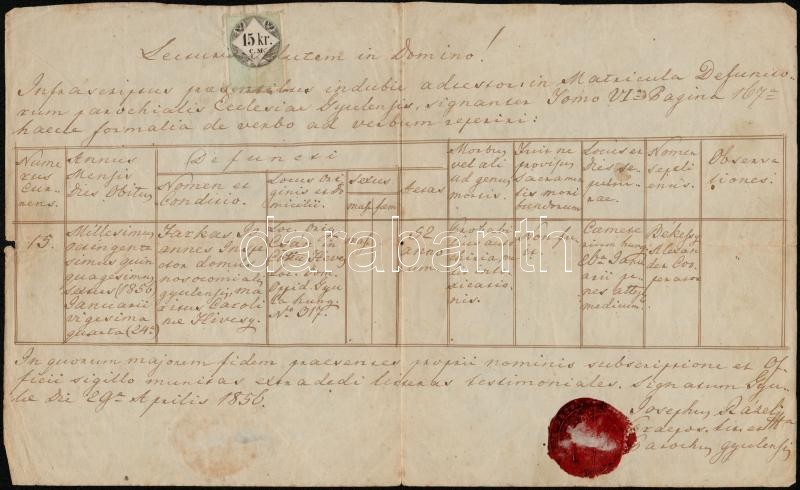 15 kr.
C.M.
in Domino!
Infrascriptus praesentibus indubie adtestor; in Matricula Defuncto-
rum parochialis Ecclesiae Gyulensis, signanter Tomo VI Pagina 167
haece formalia de verbo ad verbum reperiri:
Nume
rus
Cur-
rens.
Annus
Mensis
Dies Obitus
Defuncti
Nomen et
Conditio.
Locus Ori
ginis et Do
micilii.
sexus
mas. faem.
Aetas
Morbus
vel ali
ud genus
mortis.
Fuit ne
provisus
Sacramen
tis mori
bundorum
Locus et
dies se
pultu
rae.
Nomen
sepeli
entis.
Observa
tiones:
15.
Millesimo
octingente
simus quin
quagesimus
sextus (1856
Januarii
vigesima
quarta (24a
Farkas Jo
annes Inspe
ctor domus
nosocomialis
gyulensis, ma
ritus Caroli
nae Hivesy.
Loc. Orig.
Loc. domi.
Oppid. Gyu
la hung.
No 317.
mas.
52
anno
rum
Non fu
it.
Coeme
terium hung.
26a Janu
arii
Alexan
der Coo
perator
In quorum majorem fidem praesentes proprii nominis subscriptione et Of
ficii sigillo munitas extradedi literas testimoniales. Signatum Gyu-
lae Die 29a Aprilis 1856.
Josephus
Parochus gyulensis
darabanth